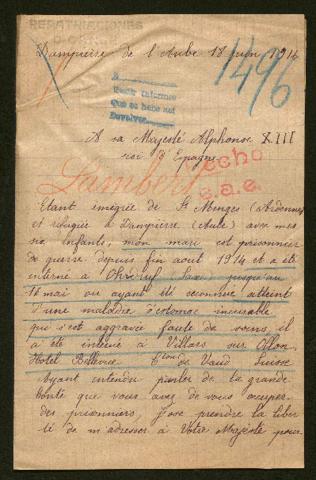 REPATRIACIONES
Dampierre de l'Aube 18 juin 1916
1496
Que se hace asi
Devolver
A sa Majesté Alphonse XIII
roi d'Espagne
echo
Lambert
s.a.e.
Etant émigrée de St Menges (Ardennes
et réfugiée à Dampierre (Aube) avec mes
enfants, mon mari est prisonnier
de guerre depuis fin aout 1914 et a été
interné à Ohrdruf (Saxe) jusqu'au
14 mai ou ayant été reconnu atteint
d'une maladie d'estomac incurable
qui s'est aggravée faute de soins, il
a été interné à Villars sur Ollon
Hotel Bellevue Cton de Vaud Suisse
Ayant entendu parler de la grande
bonté que vous avez de vous occuper
des prisonniers, j'ose prendre la liber
té de m'adresser à Votre Majesté pour